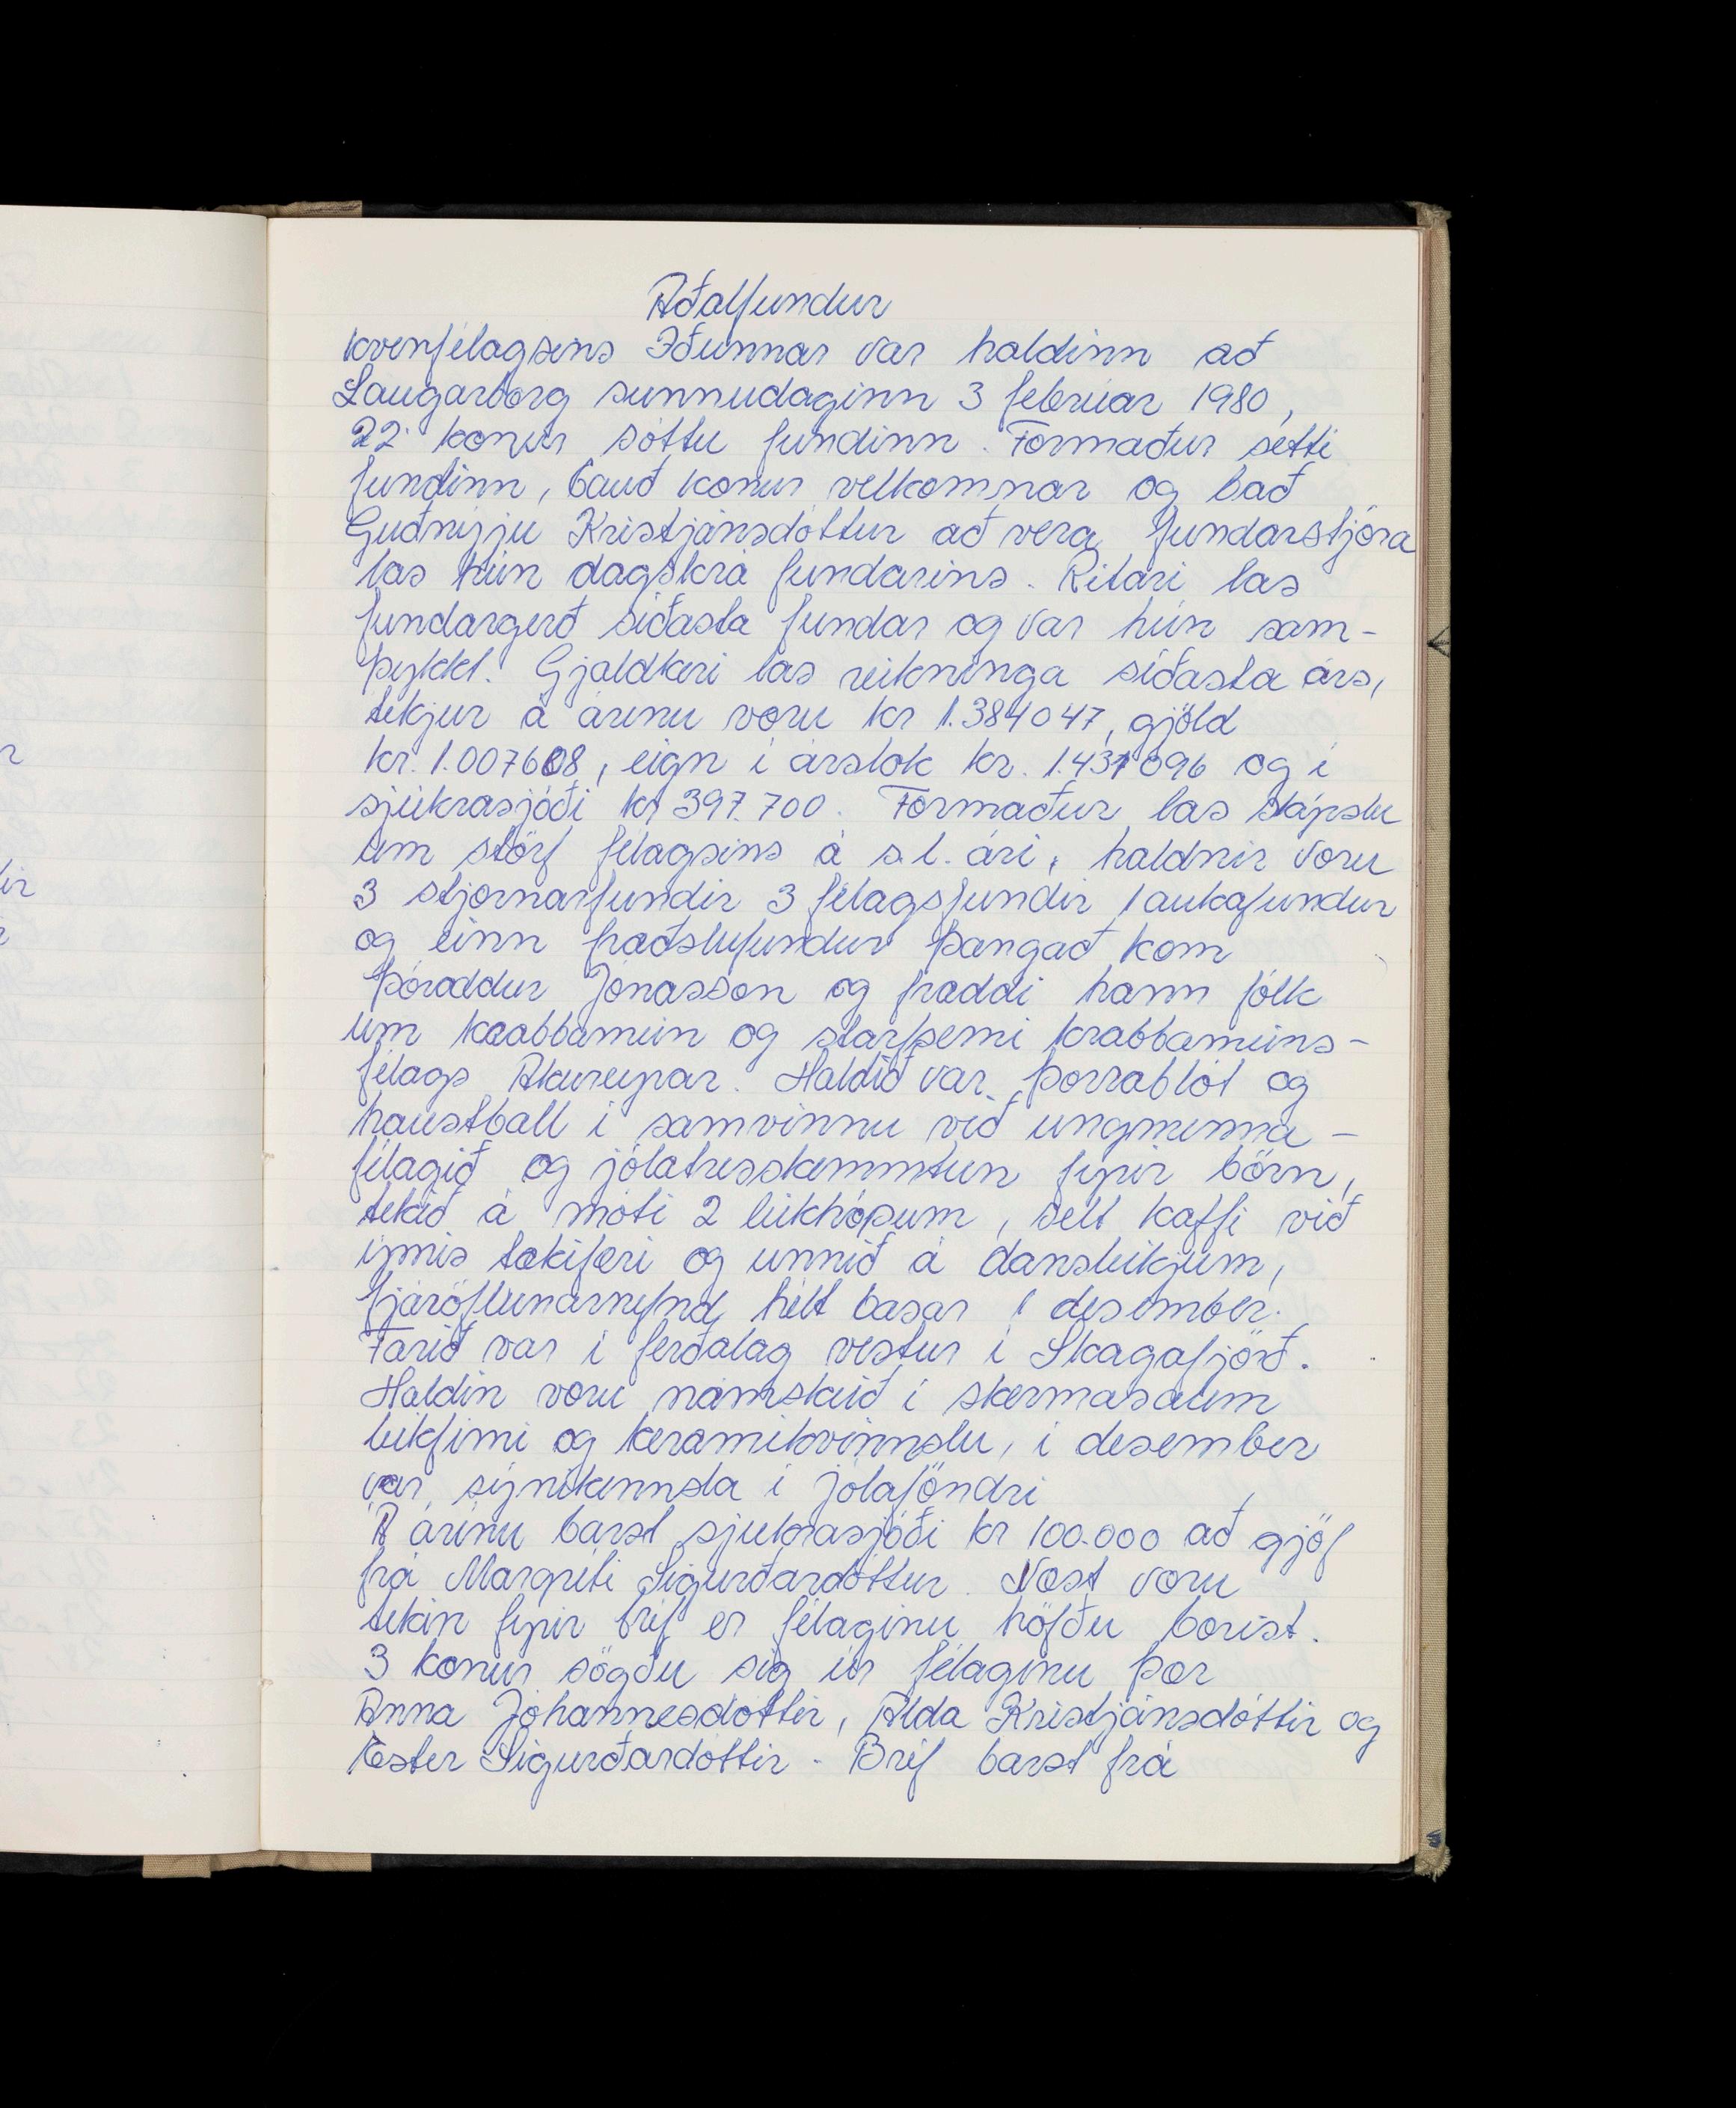 Aðalfundur
kvenfélagsins Iðunnar var haldinn að
Laugarborg sunnudaginn 3 febrúar 1980,
22 konur sóttu fundinn. Formaður setti
fundinn, bauð konur velkomnar og bað
Guðnýju Kristjánsdóttur að vera fundarstjóra
las hún dagskrá fundarins. Ritari las
fundargerð síðasta fundar og var hún sam-
þykkt. Gjaldkeri las reikninga síðasta árs,
tekjur á árinu voru kr 1.384047, gjöld
kr. 1.007608, eign í árslok kr. 1.431096 og í
sjúkrasjóði kr 397.700. Formaður las skýrslu
um störf félagsins á s.l. ári, haldnir voru
3 stjornarfundir 3 félagsfundir 1 aukafundur
og einn fræðslufundur þangað kom
Þóroddur Jónasson og fræddi hann fólk
um krabbamein og starfsemi krabbameins-
félags Akureyrar. Haldið var þorrablót og
haustball í samvinnu við ungmenna-
félagið og jólatresskemmtun fyrir börn,
tekið á móti 2 leikhópum, selt kaffi við
ýmis tækifæri og unnið á dansleikjum,
fjáröflunarnefnd hélt basar 1 desember.
Farið var í ferðalag vestur í Skagafjörð.
Haldin voru námskeið í skermasaum
leikfimi og keramikvinnslu, í desember
var sýnikennsla í jólaföndri
Á árinu barst sjukrasjóði kr 100.000 að gjöf
frá Margréti Sigurðardóttur. Næst voru
tekin fyrir bréf er félaginu höfðu borist.
3 konur sögðu sig úr félaginu þær
Anna Jóhannesdóttir, Alda Kristjánsdóttir og
Ester Sigurðardóttir. Bréf barst frá